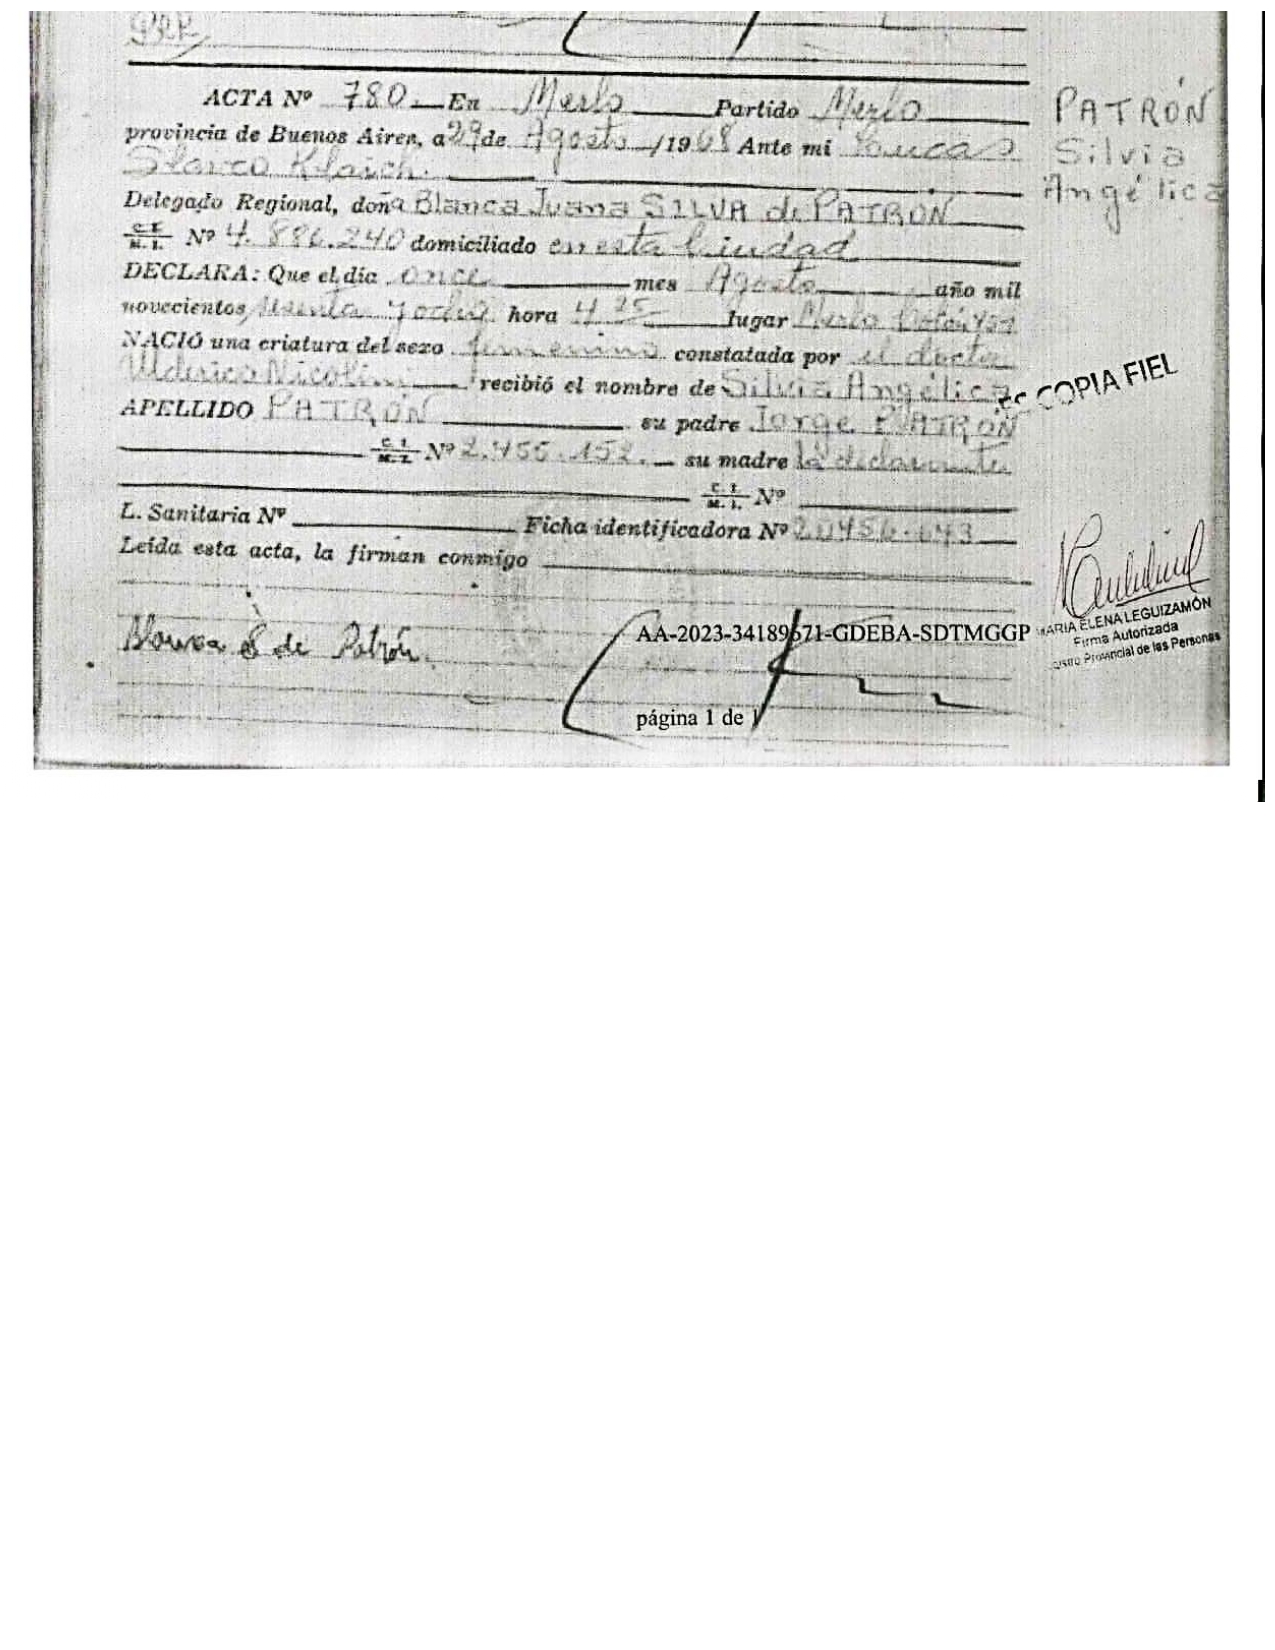 ACTA Nº 780 En Merlo Partido Merlo
provincia de Buenos Aires, a 29 de Agosto /1968 Ante mi Lucas
Delegado Regional, doña Blanca Juana SILVA de PATRON
C. I. M. I. Nº 4.886.240 domiciliado en esta Ciudad
DECLARA: Que el día once mes Agosto año mil
novecientos sesenta y ocho hora 4 25 lugar Merlo
NACIÓ una criatura del sexo femenino constatada por el doctor
Nicolini recibió el nombre de Silvia Angélica
APELLIDO PATRÓN su padre Jorge PATRON
C. I. M. I. Nº 2.455.152. su madre la declarante
C. I. M. I. Nº
L. Sanitaria Nº Ficha identificadora Nº 20456.643
Leída esta acta, la firman conmigo
Blanca S de Patrón.
PATRÓN
Silvia
Angélica
ES COPIA FIEL
MARIA ELENA LEGUIZAMÓN
Firma Autorizada
Provincial de las Personas
AA-2023-34189671-GDEBA-SDTMGGP
página 1 de 1